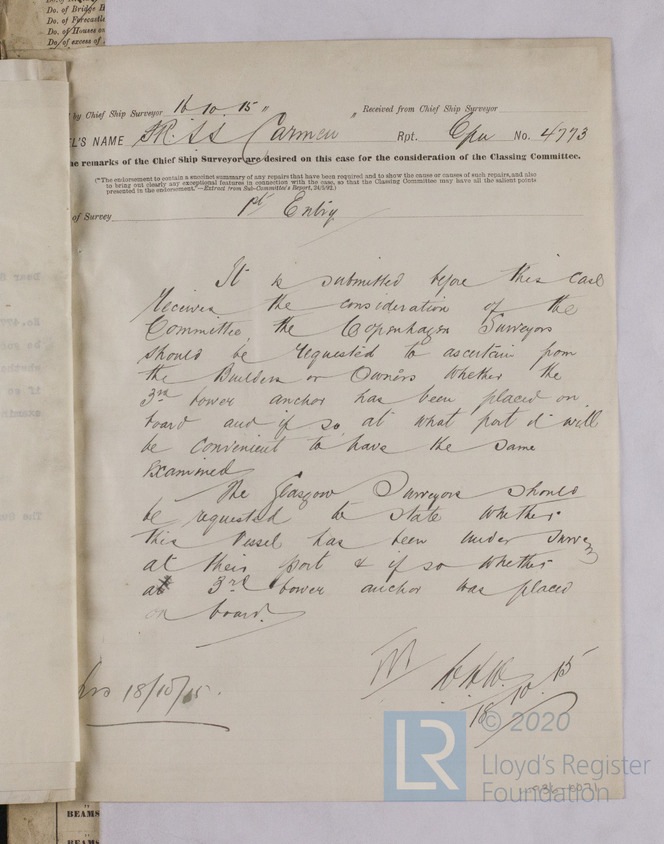 Do. of Bridge
Do. of Forecastle
Do. of Houses
Do. of excess of
by Chief Ship Surveyor 16 10 15 " " Received from Chief Ship Surveyor
EL'S NAME Carmen Rpt. Cpn No. 4773
he remarks of the Chief Ship Surveyor are desired on this case for the consideration of the Classing Committee.
(*The endorsement to contain a succinct summary of any repairs that have been required and to show the cause or causes of such repairs, and also
to bring out clearly any exceptional features in connection with the case, so that the Classing Committee may have all the salient points
presented in the endorsement."—Extract from Sub-Committee's Report, 24/5/92.)
of Survey 1st Entry
It is submitted before this case
receives the consideration of the
Committee, the Copenhagen Surveyors
should be requested to ascertain from
the Builders or Owners whether the
3rd bower anchor has been placed on
board and if so, at what port it will
be convenient to have the same
examined
The Glasgow Surveyors should
be requested to state whether
this vessel has been under survey
at their port & if so whether
a 3rd bower anchor was placed
on board.
18/10/15.
18 10 15
LR
© 2020
Lloyd's Register
Foundation
BEAMS
BEAMS